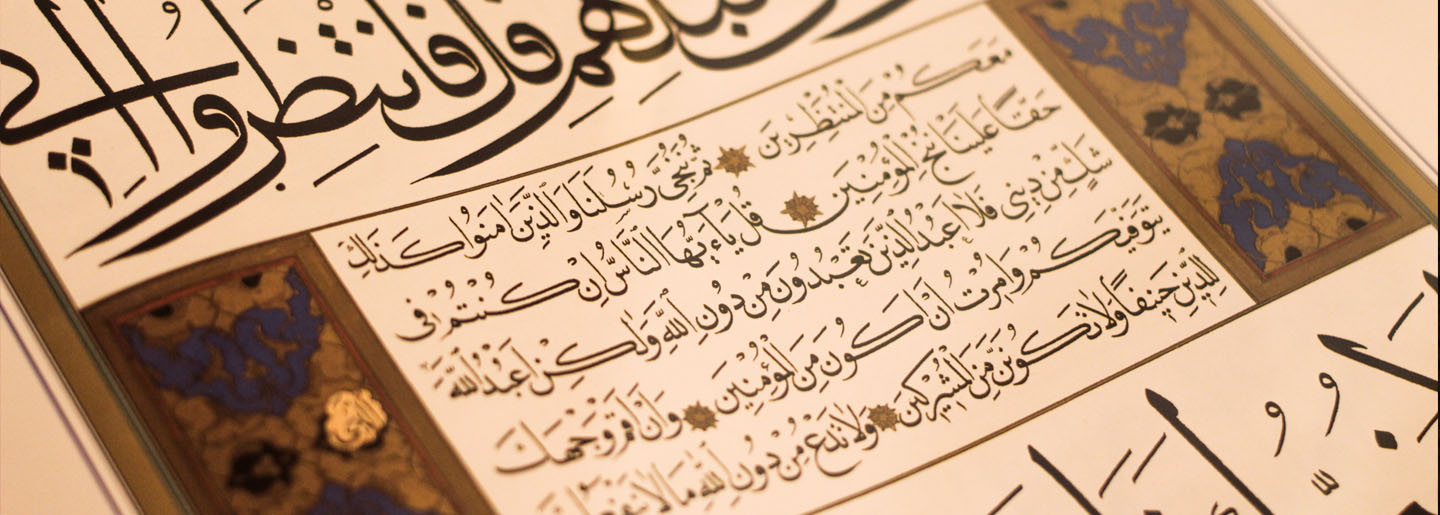 قَبْلِهِمْ قُلْ فَانْتَظِرُوا اِنِّي
مَعَكُمْ مِنَ الْمُنْتَظِرِينَ ثُمَّ نُنَجِّي رُسُلَنَا وَالَّذِينَ اٰمَنُوا كَذٰلِكَ
حَقًّا عَلَيْنَا نُنْجِ الْمُؤْمِنِينَ قُلْ يَاءَيُّهَا النَّاسُ اِنْ كُنْتُمْ فِي
شَكٍّ مِنْ دِينِي فَلَا اَعْبُدُ الَّذِينَ تَعْبُدُونَ مِنْ دُونِ اللّٰهِ وَلٰكِنْ اَعْبُدُ اللّٰهَ
يَتَوَفّٰيكُمْ وَاُمِرْتُ اَنْ اَكُونَ مِنَ الْمُؤْمِنِينَ وَاَنْ اَقِمْ وَجْهَكَ
لِلدِّينِ حَنِيفًا وَلَا تَكُونَنَّ مِنَ الْمُشْرِكِينَ وَلَا تَدْعُ مِنْ دُونِ اللّٰهِ مَا لَا